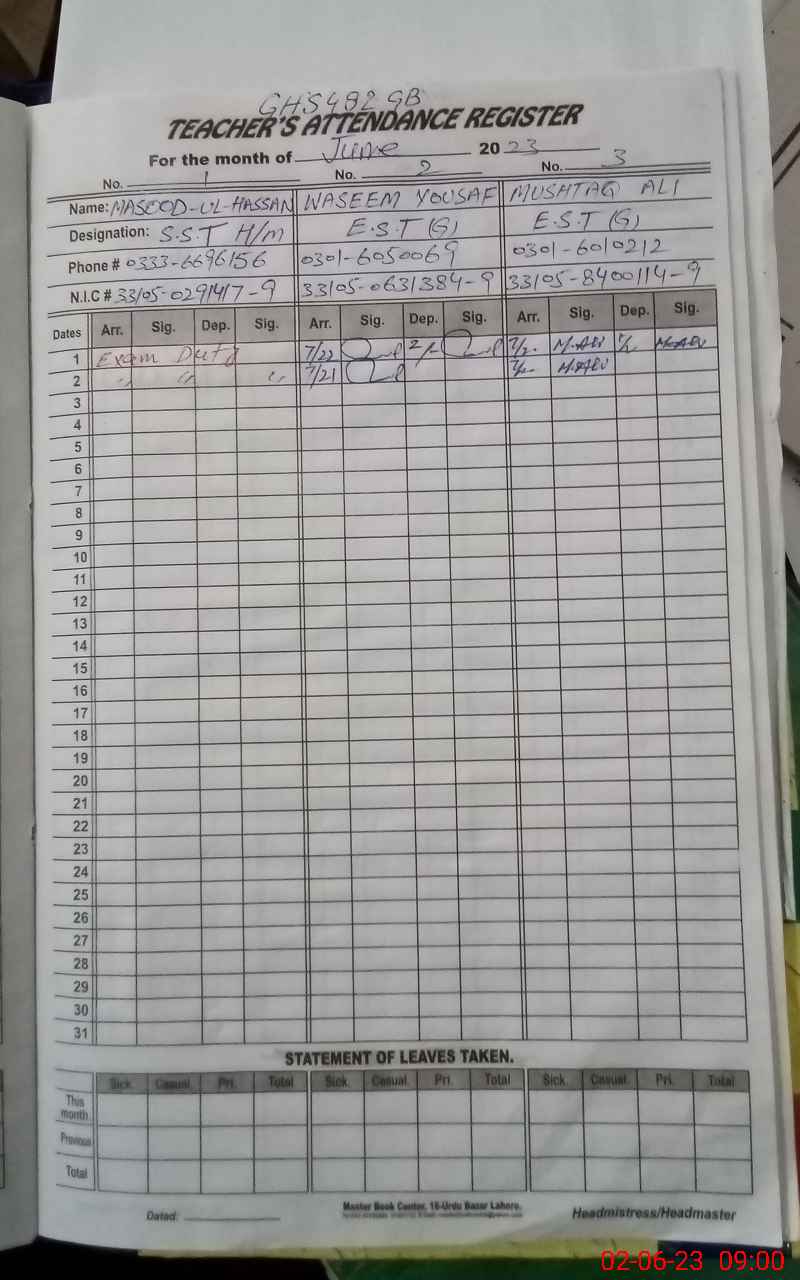 GHS 492 GB
TEACHER'S ATTENDANCE REGISTER
For the month of June 2023
No. 1 No. 2 No. 3
Name: MASOOD-UL-HASSAN WASEEM YOUSAF MUSHTAQ ALI
Designation: S.S.T H/m E.S.T (G) E.S.T (G)
Phone # 0333-6696156 0301-6050069 0301-6010212
N.I.C # 33105-0291417-9 33105-0631384-9 33105-8400114-9
Dates Arr. Sig. Dep. Sig. Arr. Sig. Dep. Sig. Arr. Sig. Dep. Sig.
1 Exam Duty 7/22 2/- 7/2- M.Ali M.Ali
2 " " " 7/21 7/2- M.Ali
3
4
5
6
7
8
9
10
11
12
13
14
15
16
17
18
19
20
21
22
23
24
25
26
27
28
29
30
31
STATEMENT OF LEAVES TAKEN.
Sick. Casual. Pri. Total Sick. Casual. Pri. Total Sick. Casual. Pri. Total
This month
Previous
Total
Dated:
Master Book Center, 16-Urdu Bazar Lahore.
Headmistress/Headmaster
02-06-23 09:00